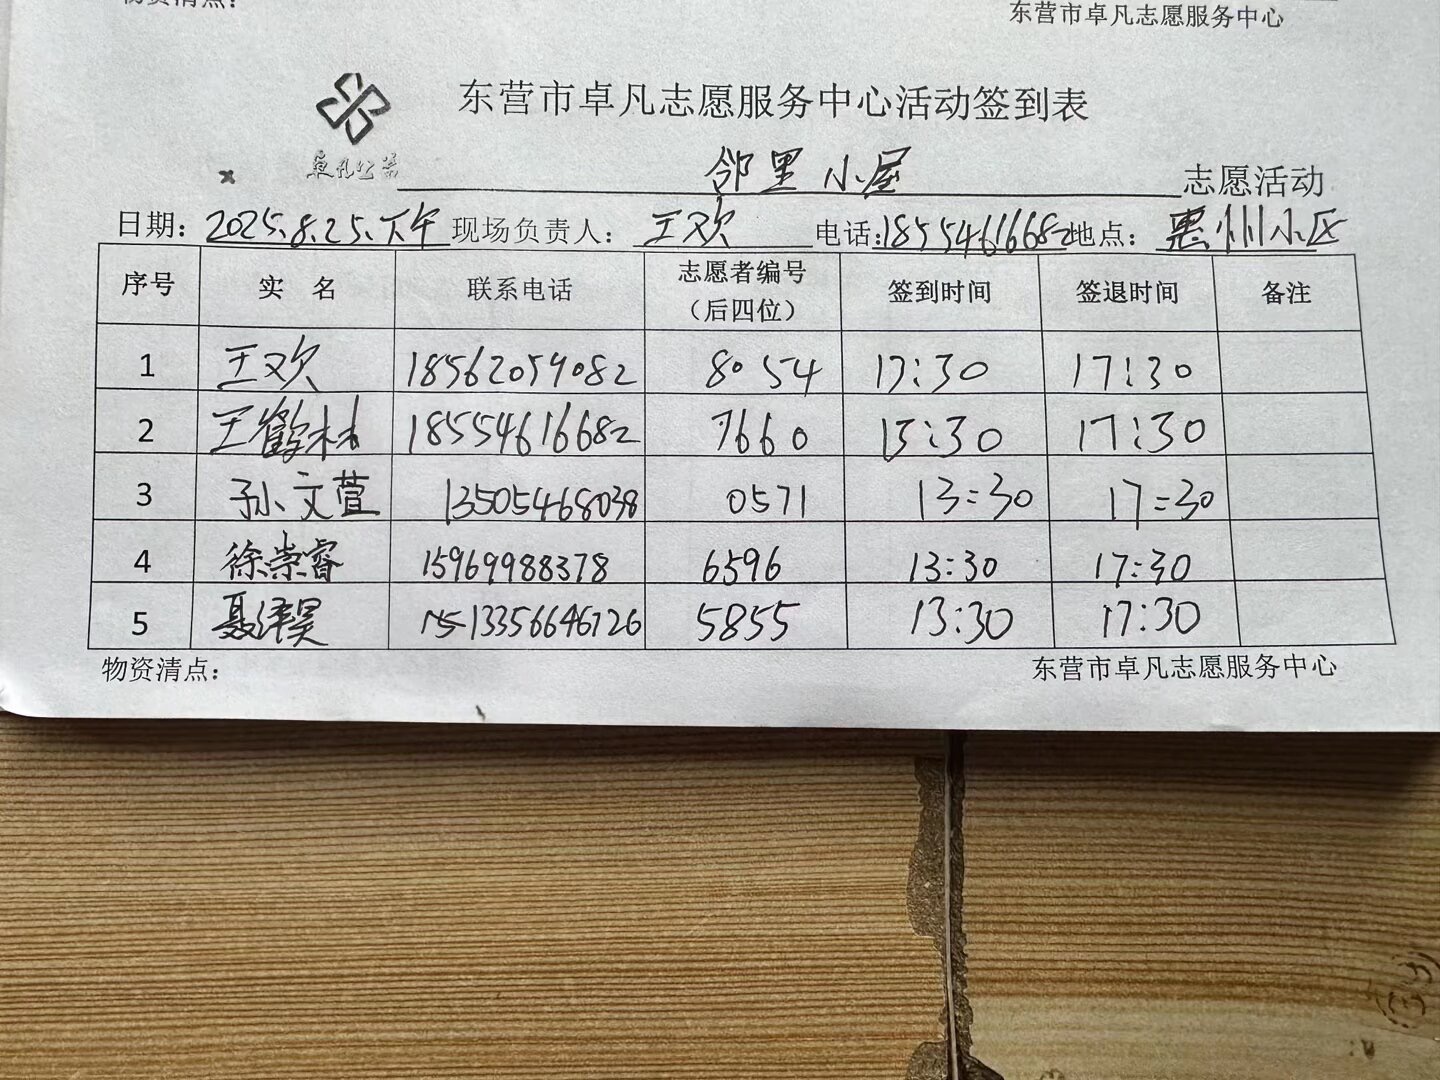 物资清点：
东营市卓凡志愿服务中心
东营市卓凡志愿服务中心活动签到表
卓凡公益
邻里小屋 志愿活动
日期：2025.8.25.下午 现场负责人：王欢 电话：18554616682 地点：惠州小区
序号 实 名 联系电话 志愿者编号（后四位） 签到时间 签退时间 备注
1 王欢 18562059082 8054 13:30 17:30
2 王鹤林 18554616682 7660 13:30 17:30
3 孙文萱 13505468038 0571 13:30 17:30
4 徐崇睿 15969988378 6596 13:30 17:30
5 聂泽昊 13356646726 5855 13:30 17:30
物资清点：
东营市卓凡志愿服务中心